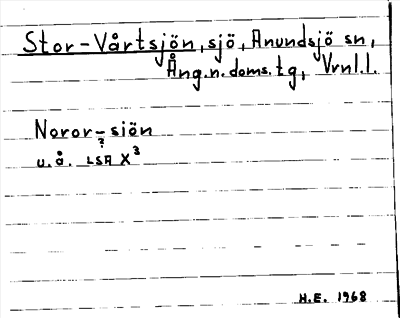 Stor-Vårtsjön, sjö, Anundsjö sn,
Ång.n.doms.tg, Vrnl.l.
Noror-sjön
?
u.å. LSA X³
H.E. 1968